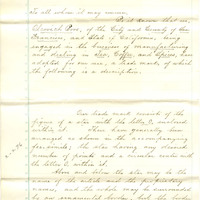 To all whom it may concern,
Be it known that we,
of the City and County of San
Francisco, and State of California, being
engaged in the business of manufacturing
and dealing in Tea, Coffee, and Spices, have
adopted for our use, a trade mark, of which
the following is a description.
Our trade mark consists of the
figure of a star with the letter
within it. These I am generally
arranged as shown in the accompanying
fac-simile; the star having any desired
number of points and a circular centre with
the letter within it.
Above and below the star may be the
name of the article and the
names, and the whole may be surrounded
by an ornamental border, but the border